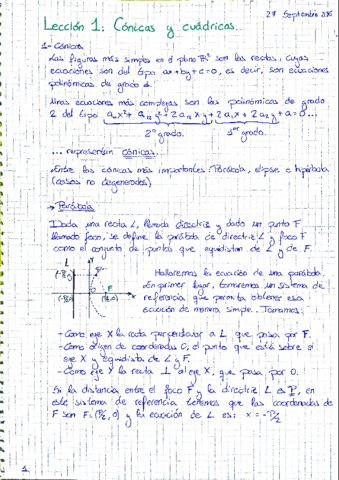 27 Septiembre 2016
Lección 1: Cónicas y cuádricas.
1- Cónicas
Las figuras más simples en el plano ℝ² son las rectas, cuyas
ecuaciones son del tipo ax+by+c=0, es decir, son ecuaciones
polinómicas de grado 1.
Unas ecuaciones más complejas son las polinómicas de grado
2 del tipo a₁₁x² + a₂₂y² + 2a₁₂xy + 2a₁x + 2a₂y + a = 0...
2º grado. 1er grado.
... representan cónicas.
Entre las cónicas más importantes: Parábola, elipse e hipérbola
(casos no degenerados)
→ Parábola
Dada una recta L, llamada directriz y dado un punto F
llamado foco, se define la parábola de directriz L y foco F
como el conjunto de puntos que equidistan de L y de F.
L
(-P/2,y)
(-P/2,0) O (P/2,0) x
F
Hallaremos la ecuación de una parábola.
En primer lugar, tomaremos un sistema de
referencia que permita obtener esa
ecuación de manera simple. Tomamos:
- Como eje X la recta perpendicular a L que pasa por F.
- Como origen de coordenadas O, el punto que está sobre el
eje X y equidista de L y F.
- Como eje Y la recta ⊥ al eje X, que pasa por O.
Si la distancia entre el foco F y la directriz L es P, en
este sistema de referencia tenemos que las coordenadas de
F son F=(P/2, 0) y la ecuación de L es: x = -P/2
1